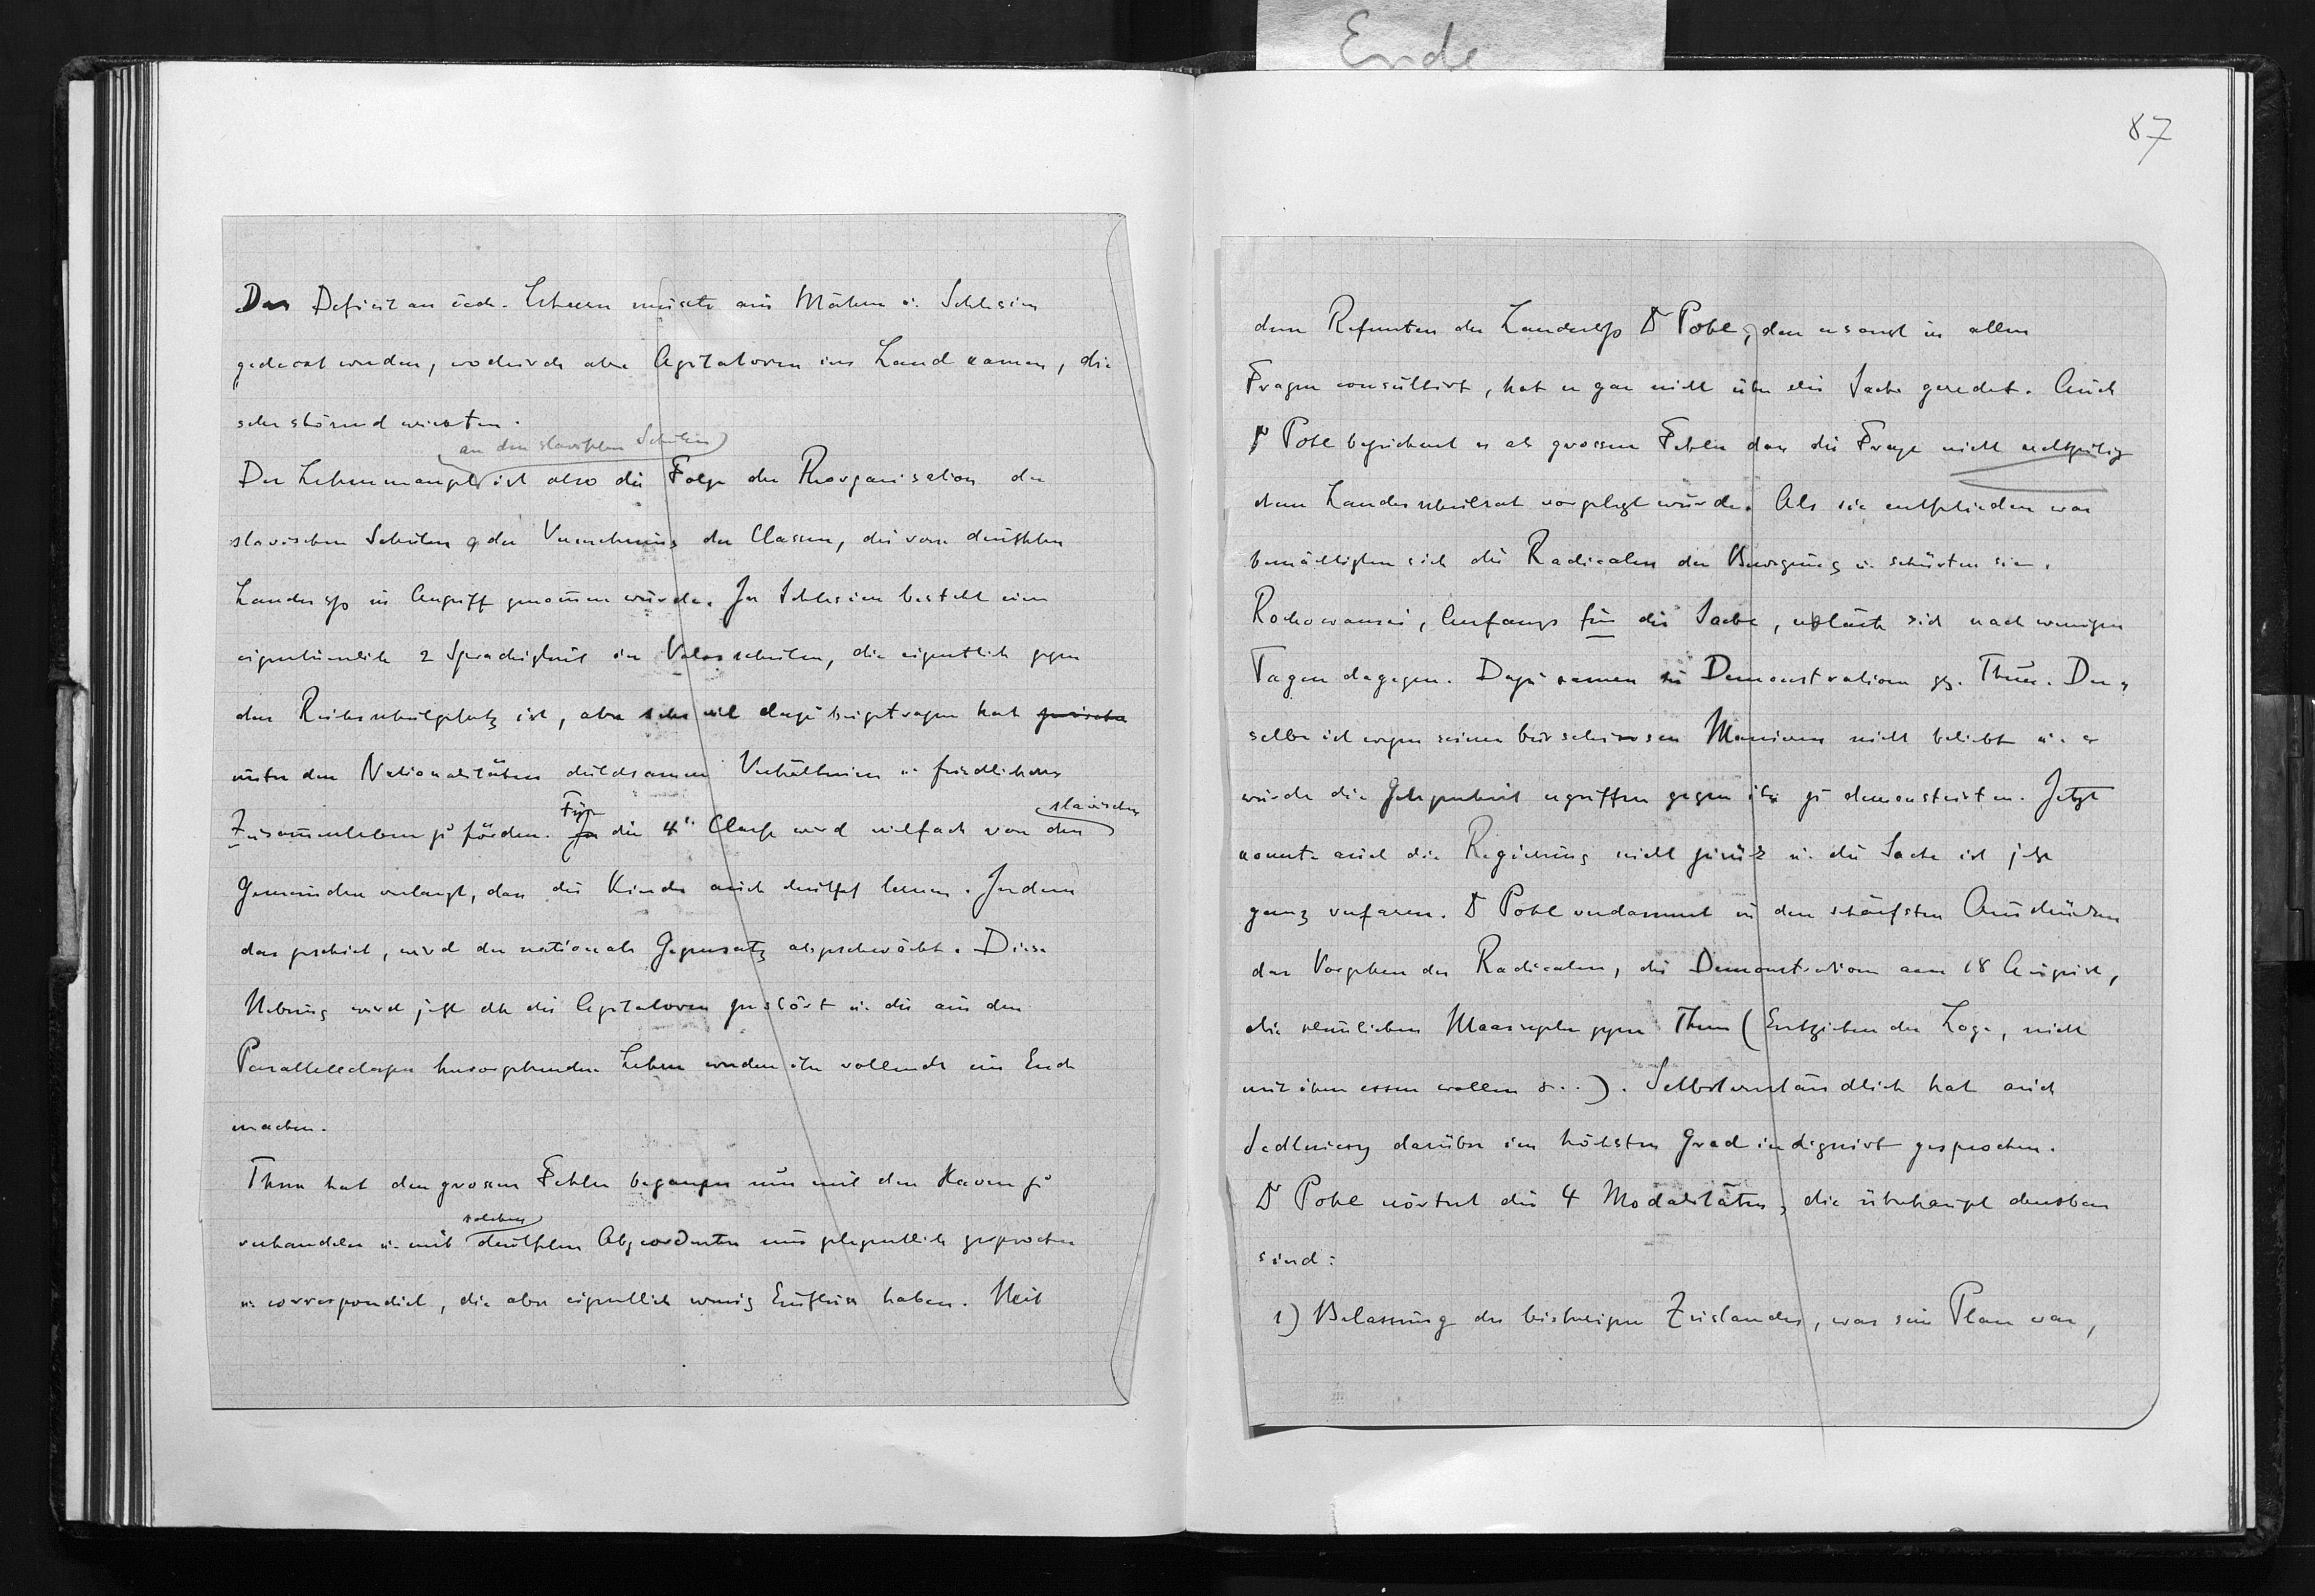 Ende
87
Das Deficit an čech. Lehrern musste aus Mähren u. Schlesien
gedeckt werden, wodurch aber Agitatoren ins Land kamen, die
sehr störend wirkten.
an den slavischen Schulen
Der Lehrermangel ist also die Folge der Reorganisation der
slavischen Schulen & der Vermehrung der Classen, die vom deutschen
in Angriff genommen wurde. In Schlesien besteht eine
eigentümliche 2 Sprachigkeit der Volksschulen, die eigentlich gegen
das Reichsschulgesetz ist, aber sehr viel dazu beigetragen hat
unter den Nationalitäten duldsame Verhältnisse u. friedliches
Für slavischen
Zusammenleben zu fördern. In die 4te Classe wird vielfach von den
Gemeinden verlangt, dass die Kinder auch deutsch lernen. Indem
das geschieht, wird der nationale Gegensatz abgeschwächt. Diese
Uebung wird jetzt dch die Agitatoren gestört u. die aus den
Parallelclassen hervorgehenden Lehrer werden ihr vollends ein Ende
machen.
Thun hat den grossen Fehler begangen nur mit den Slaven zu
solchen
verhandeln u. mit deutschen Abgeordneten nur gelegentlich gesprochen
u. correspondirt, die aber eigentlich wenig Einfluss haben. Mit
dem Referenten der Dr Pohl, den er sonst in allen
Fragen consultirt, hat er gar nicht über die Sache geredet. Auch
Dr Pohl bezeichnet es als grossen Fehler dass die Frage nicht rechtzeitig
dem Landesschulrat vorgelegt wurde. Als sie entschieden war
bemächtigten sich die Radicalen der Bewegung u. schürten sie.
Rochowanski, Anfangs für die Sache, erklärte sich nach wenigen
Tagen dagegen. Dazu kamen die Demonstrationen gg. Thun. Der-
selbe ist wegen seiner burschikosen Manieren nicht beliebt u. es
wurde die Gelegenheit ergriffen gegen ihn zu demonstriren. Jetzt
konnte auch die Regierung nicht zurück u. die Sache ist jetzt
ganz verfaren. Dr Pohl verdammt in den schärfsten Ausdrücken
das Vorgehen der Radicalen, die Demonstration am 18 August,
die kleinlichen Maasregeln gegen Thun (Entziehen der Loge, nicht
mit ihm essen wollen &..). Selbstverständlich hat auch
Sedlnicky darüber im höchsten Grad indignirt gesprochen.
Dr Pohl erörtert die 4 Modalitäten, die überhaupt denkbar
sind:
1) Belassung des bisherigen Zustandes, was sein Plan war,